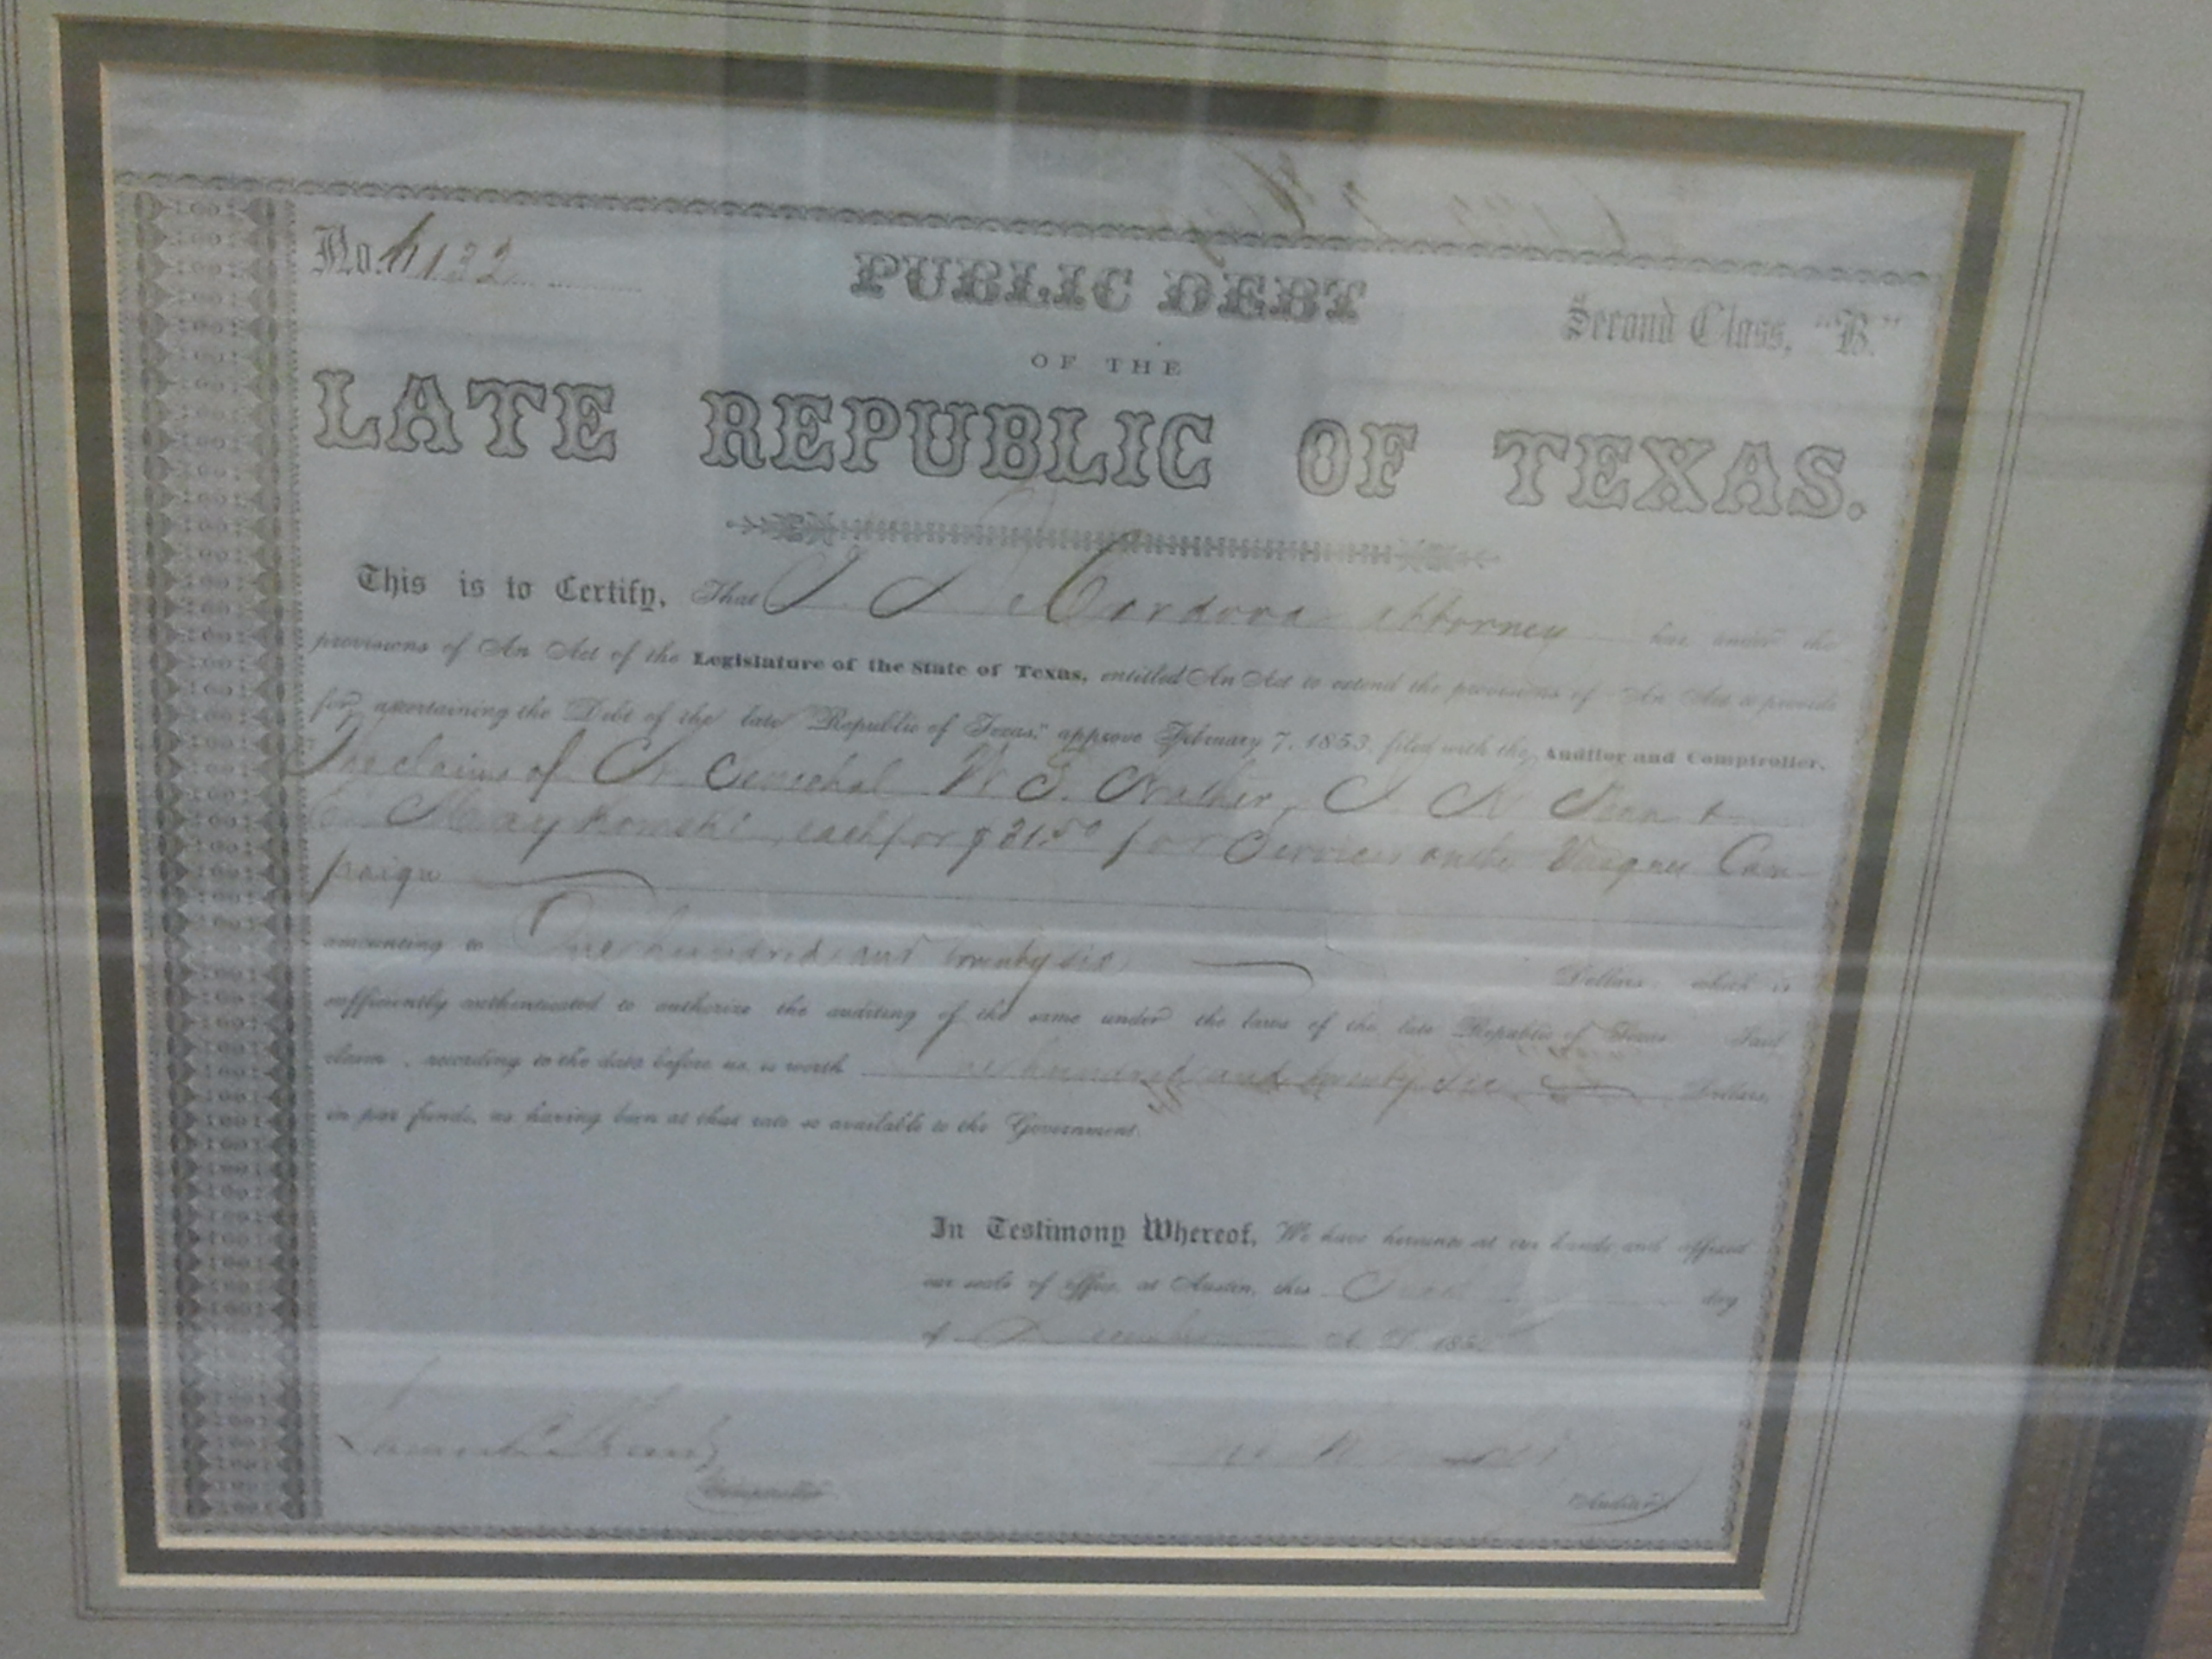 PUBLIC DEBT
Second Class, "B."
OF THE
LATE REPUBLIC OF TEXAS.
This is to Certify, That Cordova attorney has under the
provisions of An Act of the Legislature of the State of Texas, entitled An Act to extend the provisions of An Act to provide
for ascertaining the Debt of the late "Republic of Texas," approve February 7, 1853, filed with the Auditor and Comptroller,
The claims of
each for for Services on the Cam-
paign
amounting to One hundred and twenty six Dollars, which is
sufficiently authenticated to authorize the auditing of the same under the laws of the late Republic of Texas Said
claim, according to the data before us is worth One hundred and twenty six Dollars,
in par funds, as having been at that rate so available to the Government.
In Testimony Whereof, We have hereunto set our hands and affixed
our seals of office, at Austin, this day
of December A. D. 185
Comptroller
Auditor